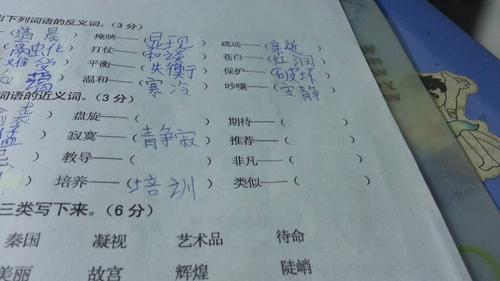 出下列词语的反义词。(3 分)
晨) 掩映——(显现) 疏远——(亲近
打仗——(和谈) 苍白——(红润
平衡——(失衡) 保护——(破坏
温和——(寒冷) 吵嚷——(安静
词语的近义词。(3 分)
) 盘旋——( ) 期待——(
寂寞——(青静寂) 推荐——(
教导——( ) 非凡——(
培养——(培训) 类似——(
三类写下来。(6 分)
秦国 凝视 艺术品 待命
美丽 故宫 辉煌 陡峭